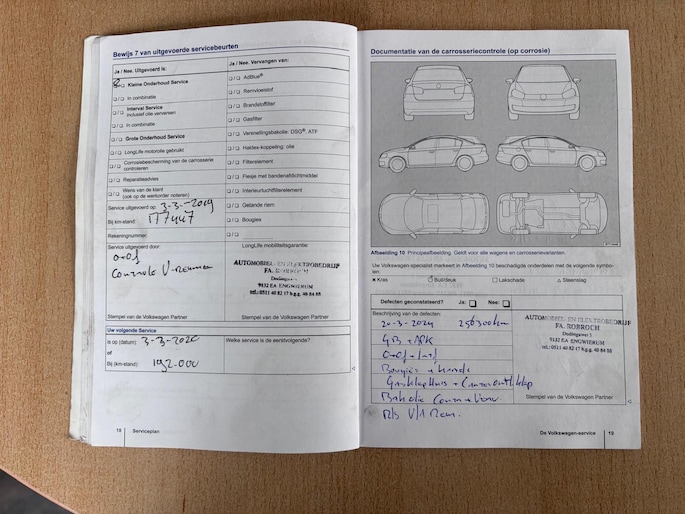 Bewijs 7 van uitgevoerde servicebeurten
Ja / Nee. Uitgevoerd is:
Kleine Onderhoud Service
In combinatie
Interval Service
inclusief olie verversen
In combinatie
Grote Onderhoud Service
LongLife motorolie gebruikt
Corrosiebescherming van de carrosserie
controleren
Reparatieadvies
Wens van de klant
(ook op de werkorder noteren)
Service uitgevoerd op: 3-3-2019
Bij km-stand: 177447
Rekeningnummer:
Service uitgevoerd door:
o+of
Controle V-remmen
Stempel van de Volkswagen Partner
Ja / Nee. Vervangen van:
AdBlue®
Remvloeistof
Brandstoffilter
Gasfilter
Versnellingsbakolie: DSG®, ATF
Haldex-koppeling: olie
Filterelement
Flesje met bandenafdichtmiddel
Interieurluchtfilterelement
Getande riem
Bougies
LongLife mobiliteitsgarantie:
AUTOMOBIEL- EN ELEKTROBEDRIJF
FA. ROBROCH
Dodingawei 5
9132 EA ENGWIERUM
tel.: 0511 40 82 17 b.g.g. 40 84 88
Stempel van de Volkswagen Partner
Uw volgende Service
is op (datum): 3-3-2020
of
Bij (km-stand): 192-000
Welke service is de eerstvolgende?
18 Serviceplan
Documentatie van de carrosseriecontrole (op corrosie)
Afbeelding 10 Principeafbeelding. Geldt voor alle wagens en carrosserievarianten.
Uw Volkswagen-specialist markeert in Afbeelding 10 beschadigde onderdelen met de volgende symbo-
len.
Kras Buil/deuk Lakschade Steenslag
Defecten geconstateerd? Ja: Nee:
Beschrijving van de defecten:
20-3-2024 256300km
GB + APK
o+of + i+f
Bougies
Gasklephuis +
Controle
R/b V/A Rem.
AUTOMOBIEL- EN ELEKTROBEDRIJF
FA. ROBROCH
Dodingawei 5
9132 EA ENGWIERUM
tel.: 0511 40 82 17 b.g.g. 40 84 88
Stempel van de Volkswagen Partner
De Volkswagen-service 19